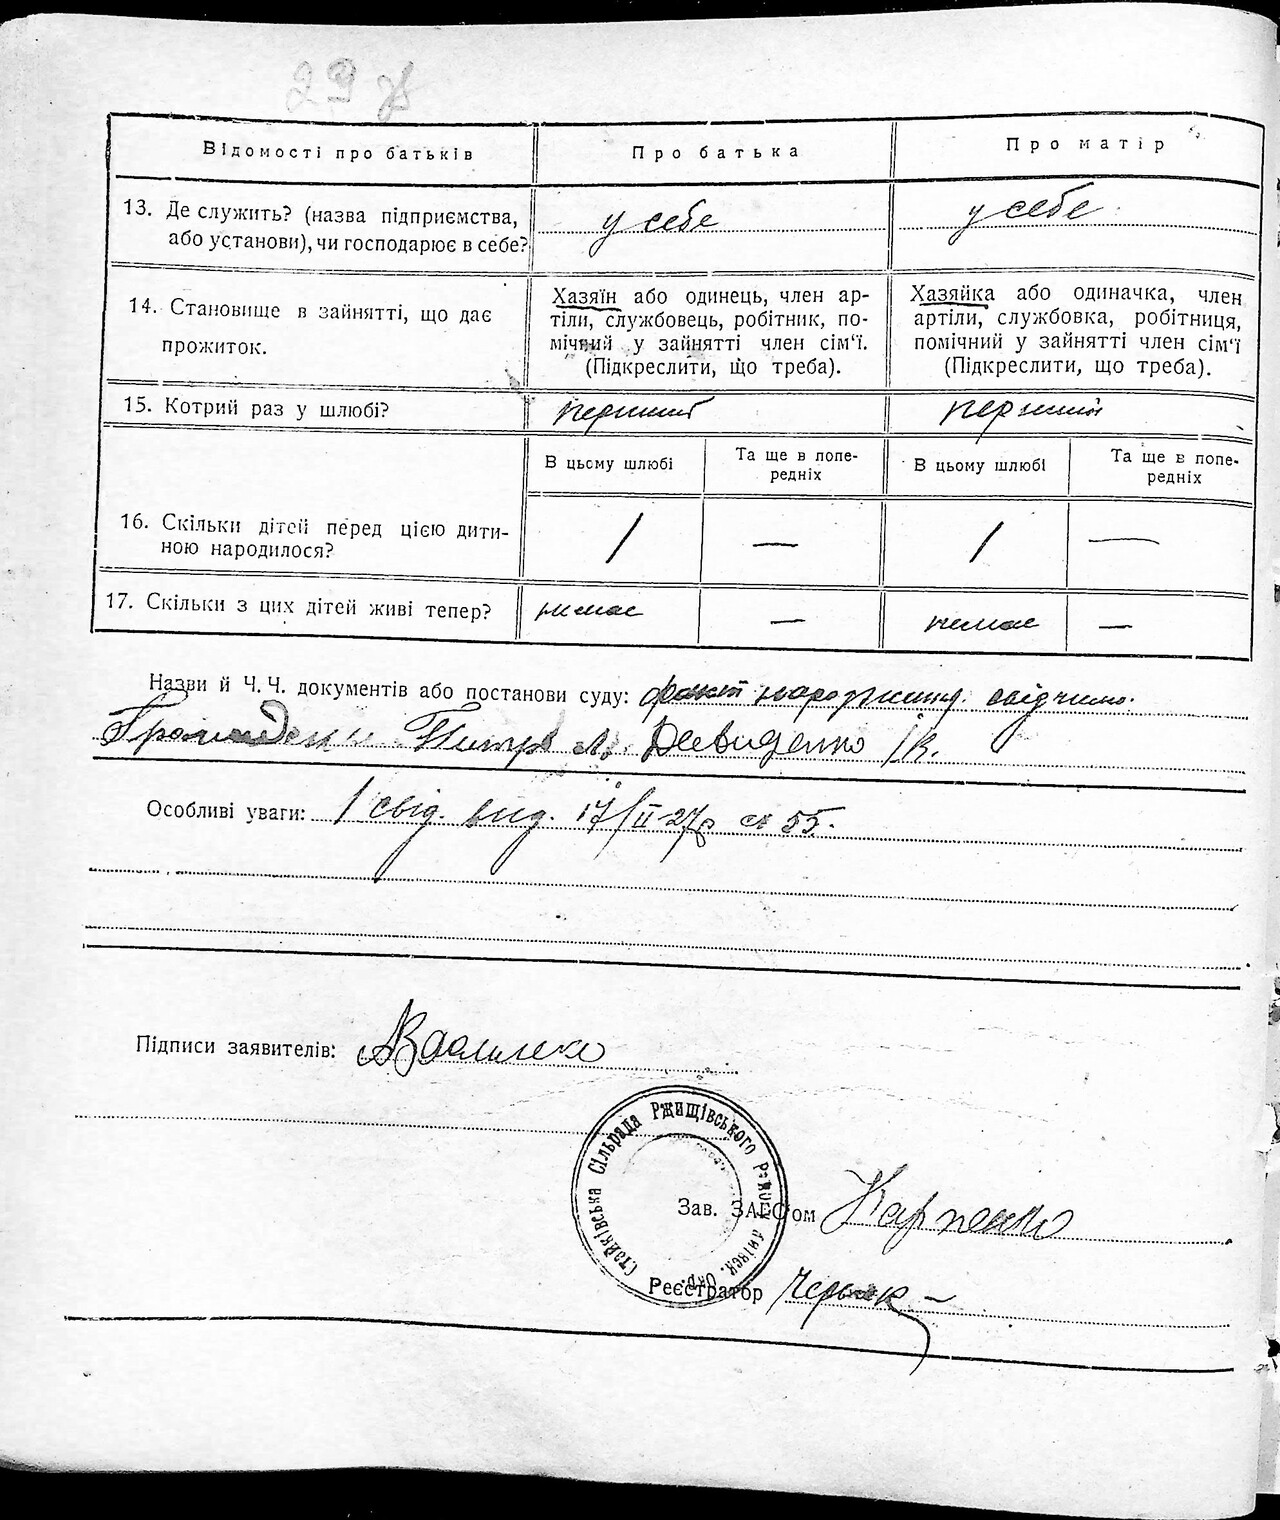 29 зв
Відомості про батьків
Про батька
Про матір
13. Де служить? (назва підприємства,
або установи), чи господарює в себе?
у себе
у себе
14. Становище в зайнятті, що дає
прожиток.
Хазяїн або одинець, член ар-
тіли, службовець, робітник, по-
мічний у зайнятті член сім'ї.
(Підкреслити, що треба).
Хазяйка або одиначка, член
артіли, службовка, робітниця,
помічний у зайнятті член сім'ї
(Підкреслити, що треба).
15. Котрий раз у шлюбі?
перший
перший
В цьому шлюбі
Та ще в попе-
редніх
В цьому шлюбі
Та ще в попе-
редніх
16. Скільки дітей перед цією дити-
ною народилося?
1
—
1
—
17. Скільки з цих дітей живі тепер?
немає
—
немає
—
Назви й Ч. Ч. документів або постанови суду: факт народження свідчими
Громадяни Петро Давиденко
Особливі уваги: 1 свід. вид. 17/II-27р 55.
Підписи заявителів:
Стайківська Сільрада Ржищівського Району Київск. Окр.
Зав. ЗАГС'ом Карпенко
Реєстратор